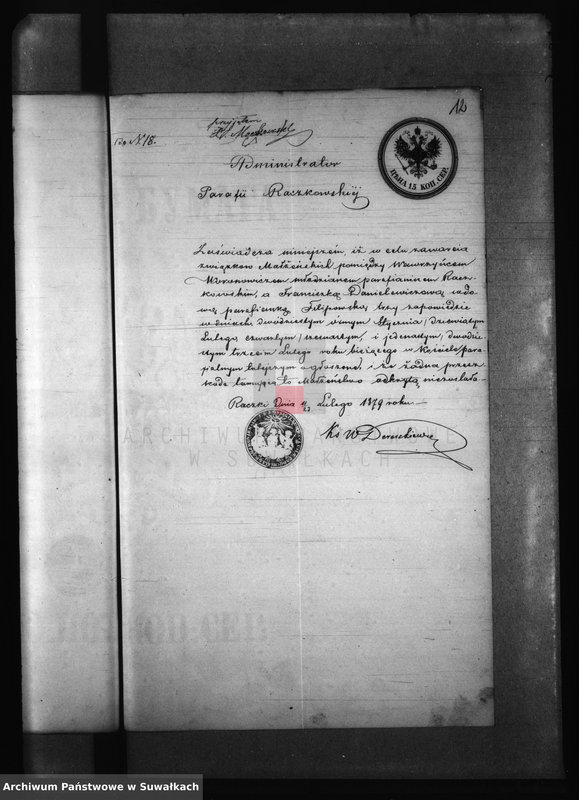 12
przyjętem
Do N. 18.
Administrator
Parafii Raczkowskiéj
ЦѢНА 15 КОП. СЕР.
Zaświadcza niniejszém, iż w celu zawarcia
związków Małżeńskich pomiędzy Wawrzyńcem
Młodzianem parafianinem Racz-
kowskim, a Franciszką Danilewiczową
parafianką Filipowską trzy zapowiedzie
w dniach: dwudziestym ósmym Stycznia / dziewiątym
Lutego czwartym / szesnastym, i jedenastym / dwudzie-
stym trzecim Lutego roku bieżącego w Kościele para-
fialnym tutejszym ogłoszone, i że żadna przesz-
koda tamująca to Małżeństwo odkrytą niezostała
Raczki Dnia 11/23 Lutego 1879 roku
Ks W
ARCHIWUM PAŃSTWOWE
W SUWAŁKACH
Archiwum Państwowe w Suwałkach